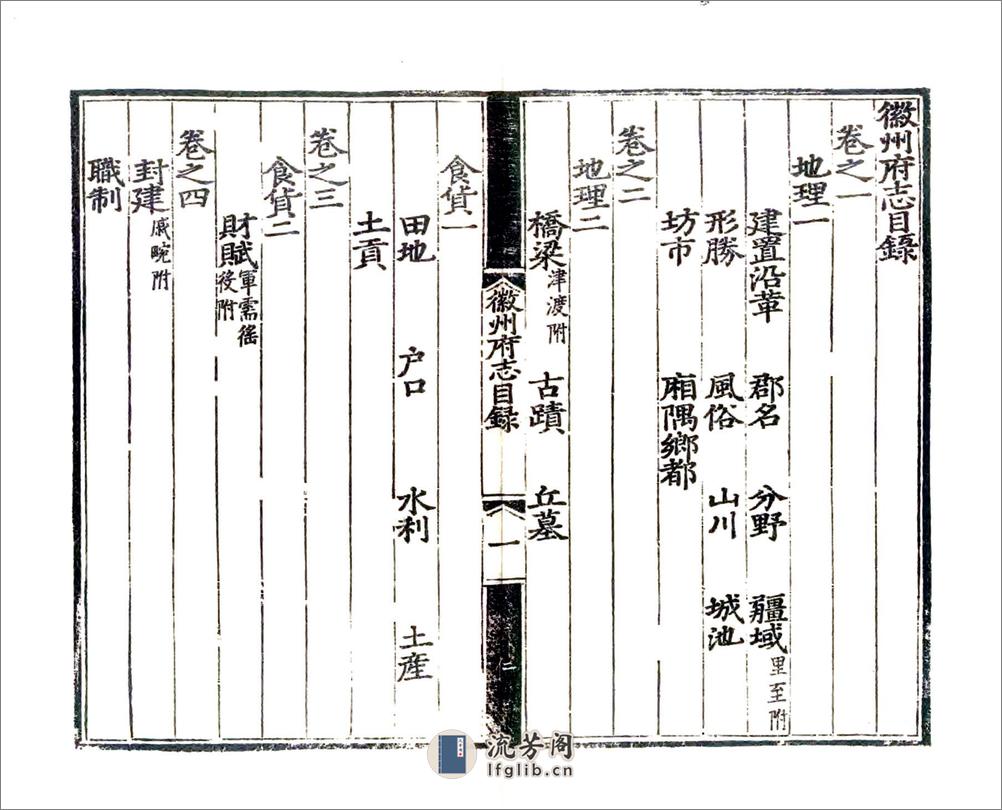 徽州府志目録
卷之一
地理一
建置沿革 郡名 分野 疆域里至附
形勝 風俗 山川 城池
坊市 廂隅鄉都
卷之二
地理二
橋梁津渡附 古蹟 丘墓
徽州府志目録 一
仁
食貨一
田地 户口 水利 土産
土貢
卷之三
食貨二
財賦軍需徭役附
卷之四
封建戚畹附
職制
流芳阁
lfglib.cn